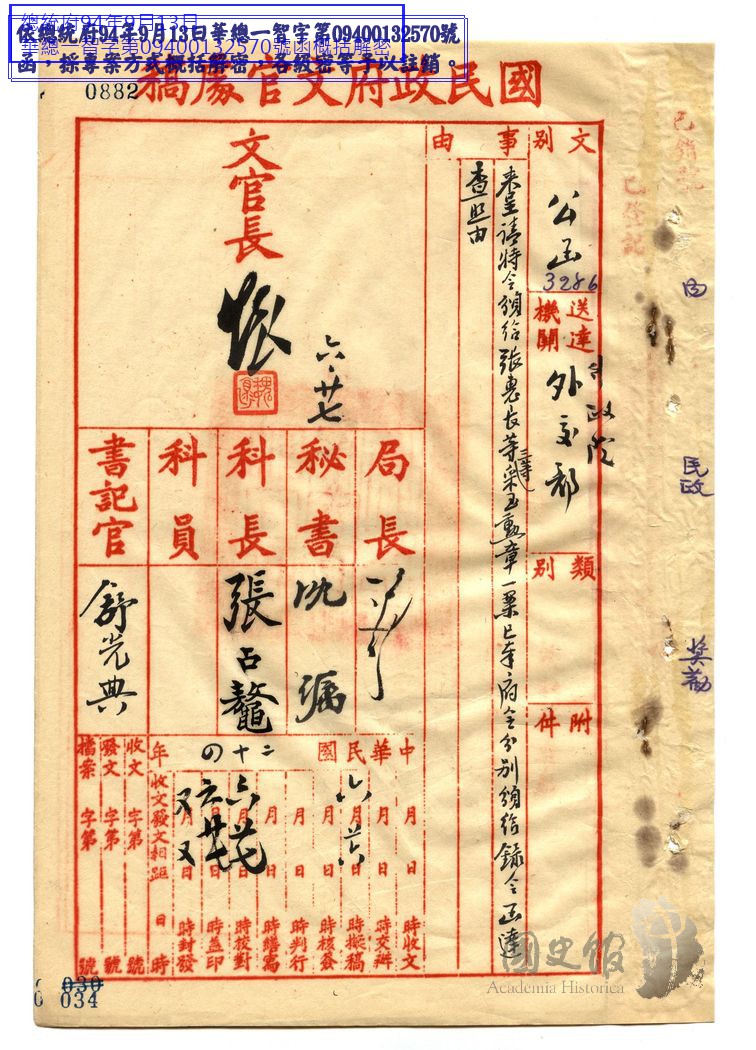 總統府94年9月13日
華總一智字第09400132570號函概括解密
依總統府94年9月13日華總一智字第09400132570號
函，採專案方式概括解密，各級密等予以註銷。
0882
國民政府文官處稿
文別
公函
3286
送達機關
行政院
外交部
類別
附件
事由
來呈請特令頒給張惠長等三等采玉勳章一案已奉府令分別頒給錄令函達
查照由
文官長
六·廿七
局長
秘書
科長
張占鰲
科員
書記官
舒光典
中華民國二十四年
月日時收文
月日時交辦
六月廿六日時擬稿
月日時核簽
月日時判行
月日時繕寫
六月廿七日時校對
六月廿七日時蓋印
又月又日時封發
收文發文相距日時
收文字第號
發文字第號
檔案字第號
已銷號
已登記
內
民政
獎勳
030
034
國史館
Academia Historica